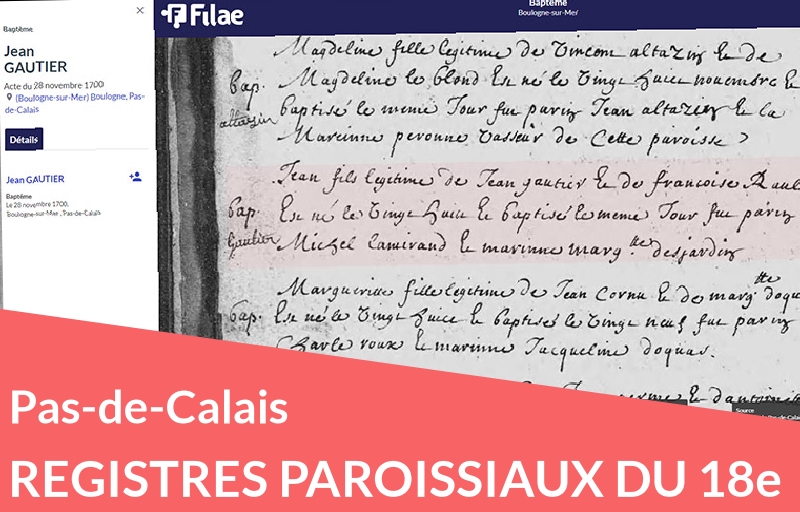 Baptême
Jean
GAUTIER
Acte du 28 novembre 1700
(Boulogne-sur-Mer) Boulogne, Pas-
de-Calais
Détails
Jean GAUTIER
Baptême
Le 28 novembre 1700,
Boulogne-sur-Mer, Pas-de-Calais
Filae
Baptême
Boulogne-sur-Mer
Magdeline fille legitime de Vincent altazin & de
bap. Magdeline le blond Est né le Vingt huict nouembre &
altazin baptisé le meme Jour fut parin Jean altazin & la
Marinne peronne Vasseur de Cette paroisse
Jean fils legitime de Jean gautier & de francoise Raul
bap. Est né le Vingt huict & baptisé le meme Jour fut parin
Gautier Michel Lamirand & marinne marg.tte desjardin
Marguerite fille legitime de Jean Cornu & de marg.tte doqu
bap. Est né le Vingt huict & baptisé le Vingt neuf fut parin
Charle roux & marinne Jacqueline doquas.
Source
Pas-de-Calais
REGISTRES PAROISSIAUX DU 18e